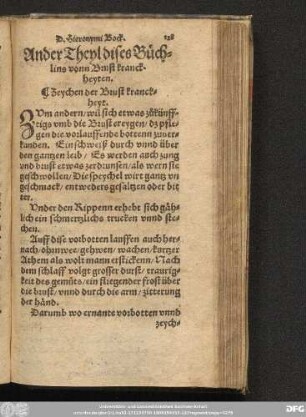 D. Hieronymi Bock.
Ander Theyl dises Büch-
lins vonn Brust kranck-
heyten.
¶ Zeychen der Brust kranck-
heyt.
ZUm andern / wil sich etwas zůkünff-
tigs vmb die Brust ereygen / dz pfle-
gen die vorlauffende botten zuuer-
kunden. Ein schweiß durch vnnd über
den gantzen leib / Es werden auch zung
vnd brust etwas zerdunsen / als wern sie
geschwollen / Die speychel wirt gantz vn
geschmack / entweders gesaltzen oder bit
ter.
Vnder den Rippenn erhebt sich gäh-
lich ein schmertzlichs trucken vnnd ste-
chen.
Auff dise vorbotten lauffen auch her-
nach / ohnmec / gehwen / wachen / kurtzer
Athem als wolt mann ersticken / Nach
dem schlaff volgt grosser durst / traurig-
keit des gemüts / ein stigender frost über
die brust / vnnd durch die arm / zitterung
der händ.
Darumb wo ernante vorbotten vnnd
zeych-